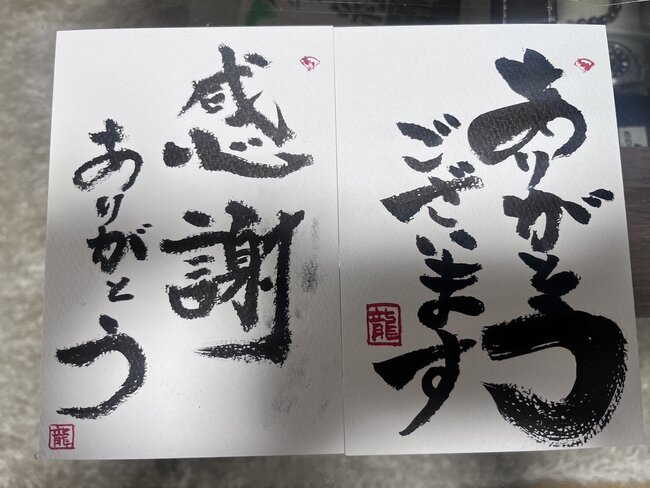 感謝
ありがとう
龍
ありがとう
ございます
龍